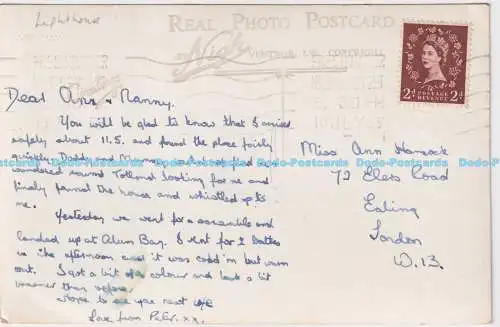 Lighthouse
REAL PHOTO POSTCARD
Nigh
VENTNOR I.W. COPYRIGHT
POSTAGE
REVENUE
2d 2d
Dear Ann & Nanny,
You will be glad to know that I arrived
safely about 11.5. and found the place fairly
quickly. Daddy and Mummy
wandered around Totland looking for me and
finally found the house and whistled up to
me.
Yesterday we went for a scramble and
landed up at Alum Bay. I went for 2 bathes
in the afternoon and it was cold in but warm
out. I got a bit of colour and look a bit
than before.
Hope to see you next
Love from Peter. xx.
Miss Ann
72 Road
Ealing
London
W.13.
Dodo-Postcards Dodo-Postcards Dodo-Postcards Dodo-Postcards Dodo-Postcards